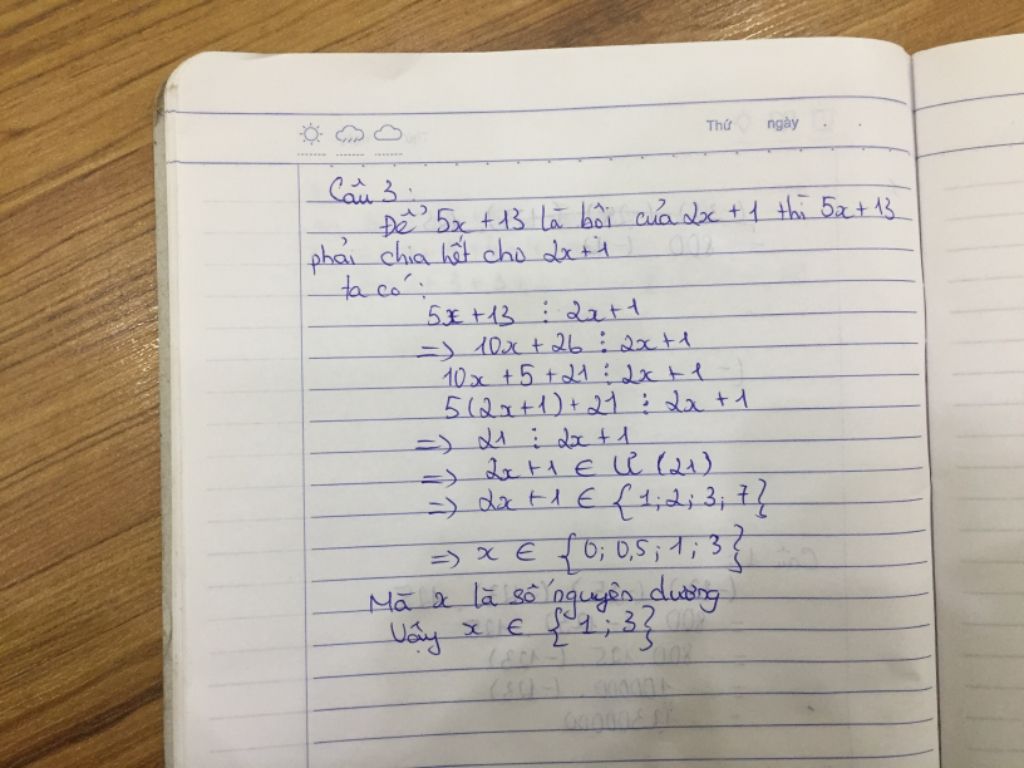 Thứ ngày
Câu 3:
Để 5x + 13 là bội của 2x + 1 thì 5x + 13
phải chia hết cho 2x+1
ta có:
5x + 13 ⋮ 2x + 1
=> 10x + 26 ⋮ 2x + 1
10x + 5 + 21 ⋮ 2x + 1
5(2x+1) + 21 ⋮ 2x + 1
=> 21 ⋮ 2x + 1
=> 2x + 1 ∈ Ư (21)
=> 2x + 1 ∈ {1; 2; 3; 7}
=> x ∈ {0; 0,5; 1; 3}
Mà x là số nguyên dương
Vậy x ∈ {1; 3}